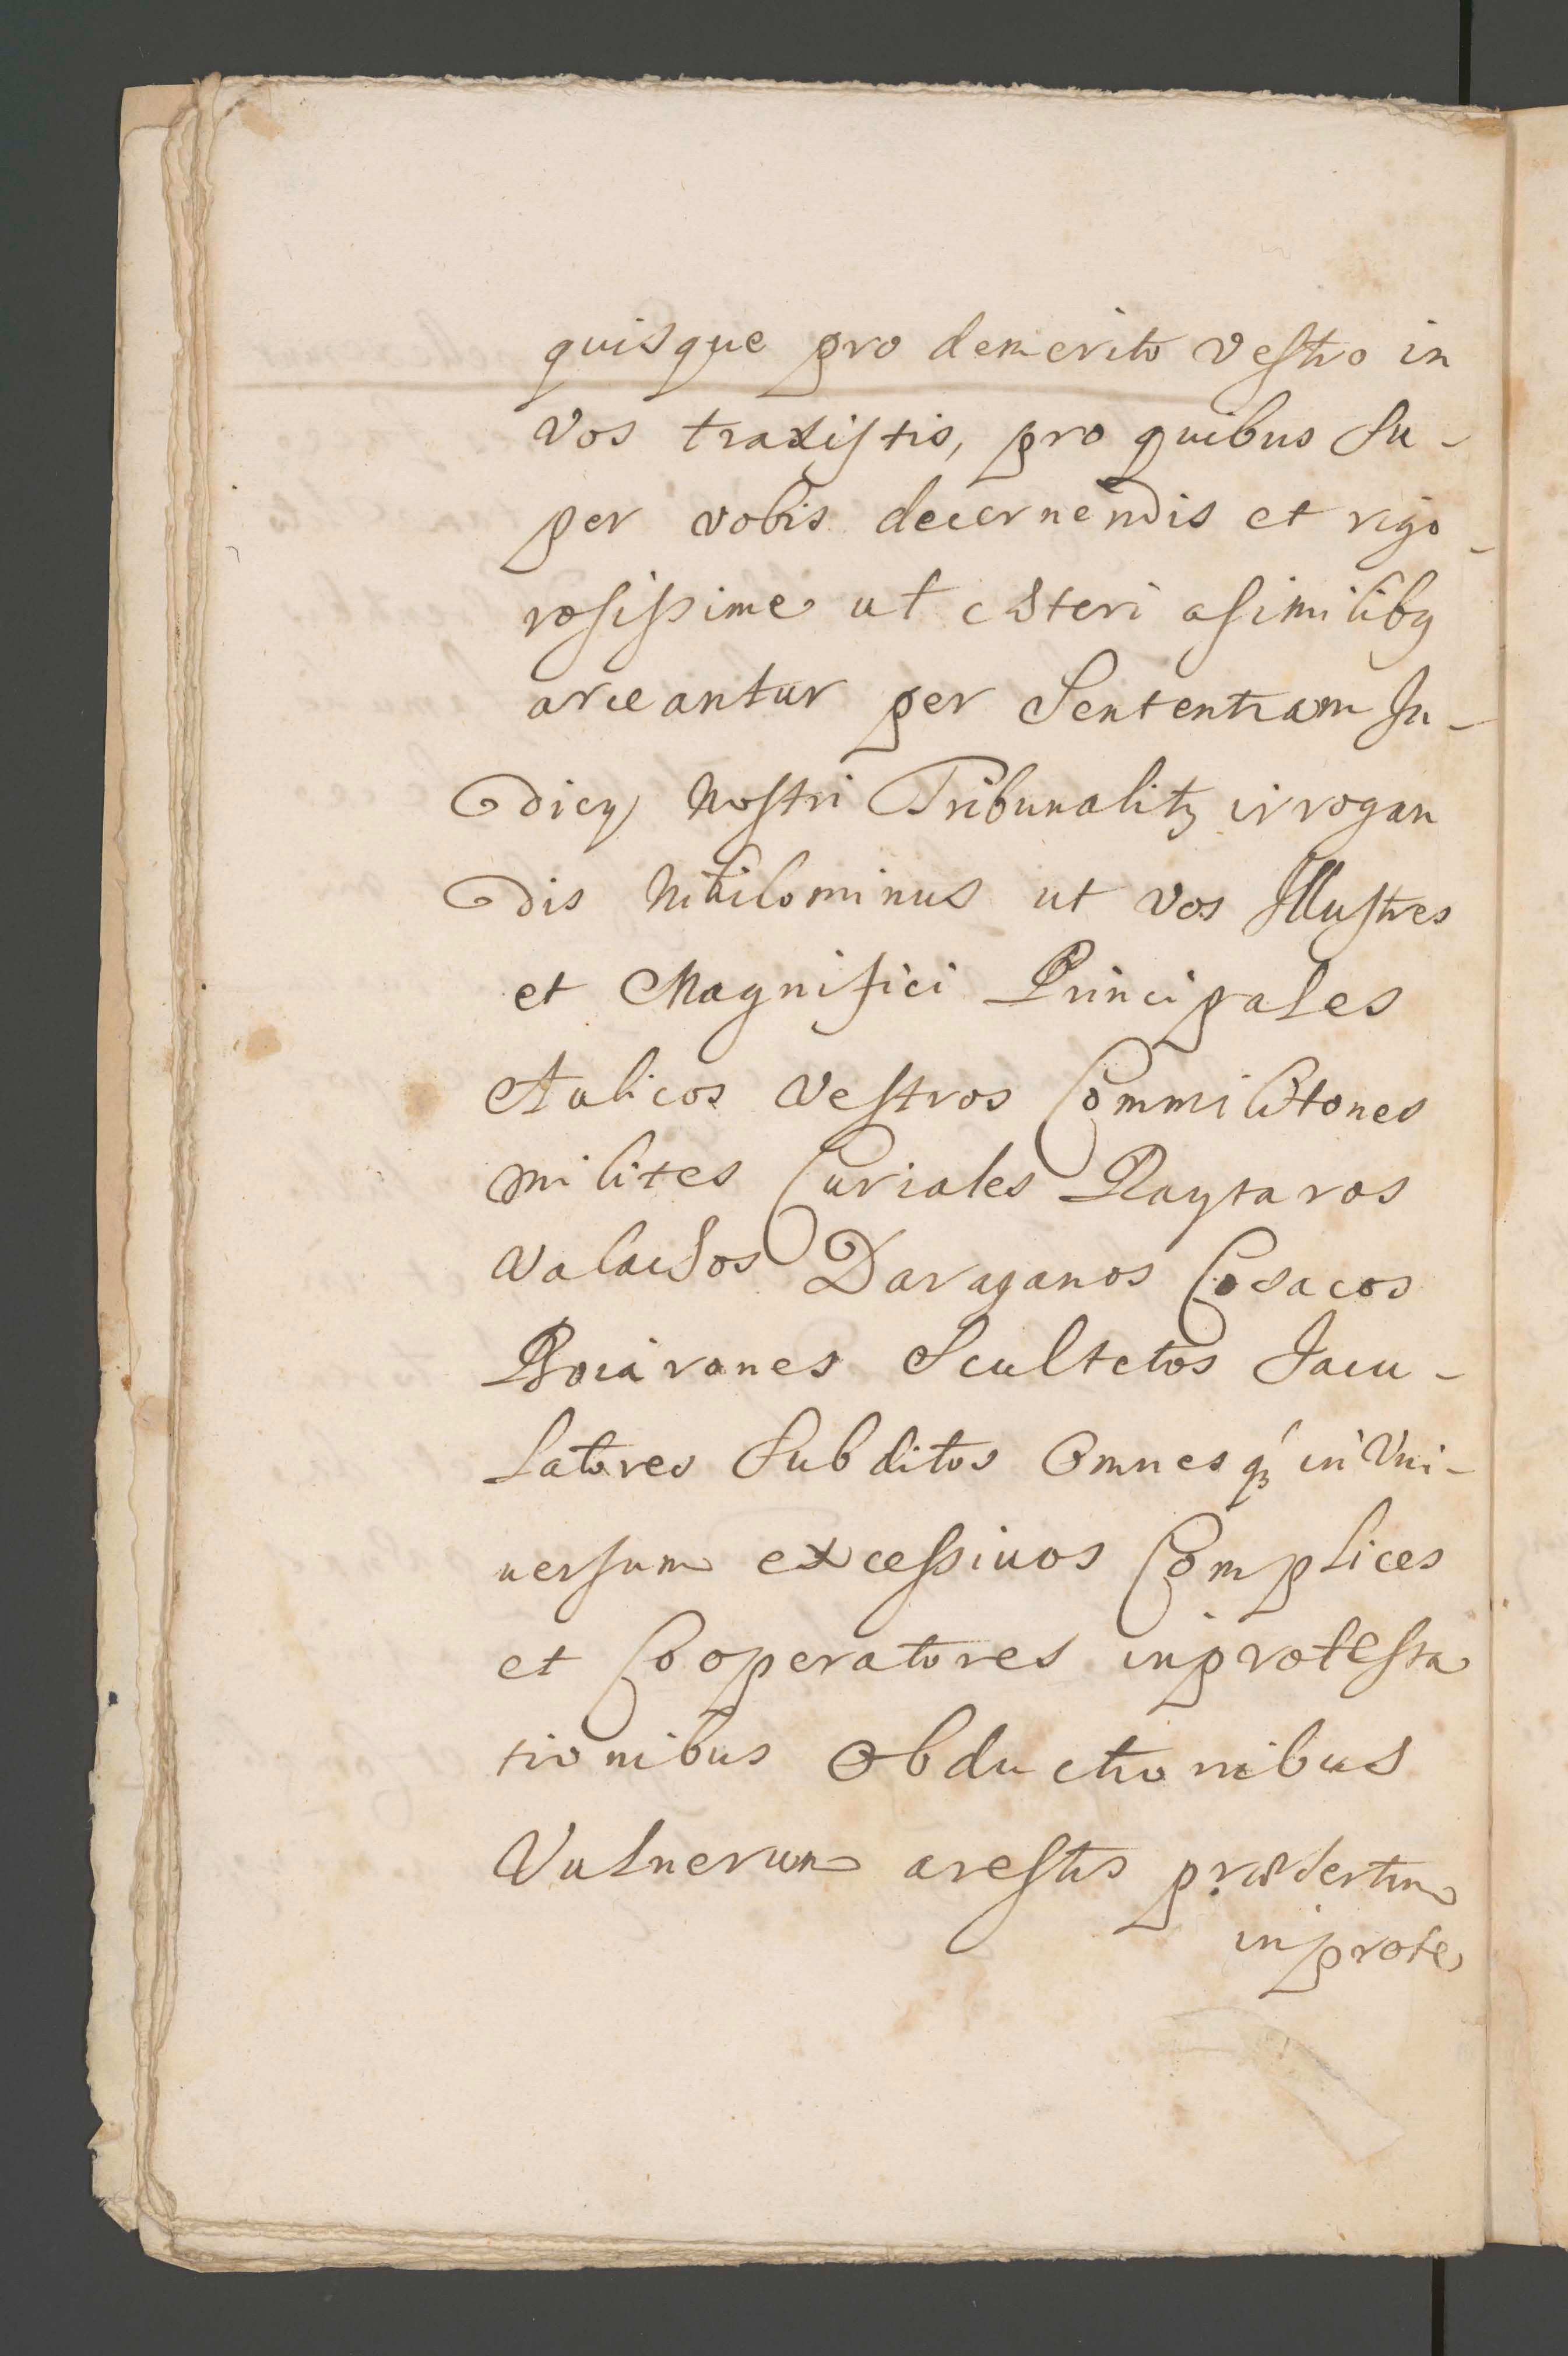 quisque pro demerito vestro in
vos traxistis, pro quibus su-
per vobis decernendis et rigo-
rosissime ut cæteri a similibq
arceantur per Sententiam Ju-
dicÿ Nostri Tribunalitɜ irrogan
dis Nihilominus ut vos Illustres
et Magnifici Principales
Aulicos vestros Commilitones
milites Curiales Raytaros
Valachos Daraganos Cosacos
Boiarones Scultetos Jacu-
latores Subditos Omnesqɜ in Uni-
uersum excessiuos Complices
et Cooperatores in protesta
tionibus Obductionibus
Vulnerum arestis præsertim
in prote